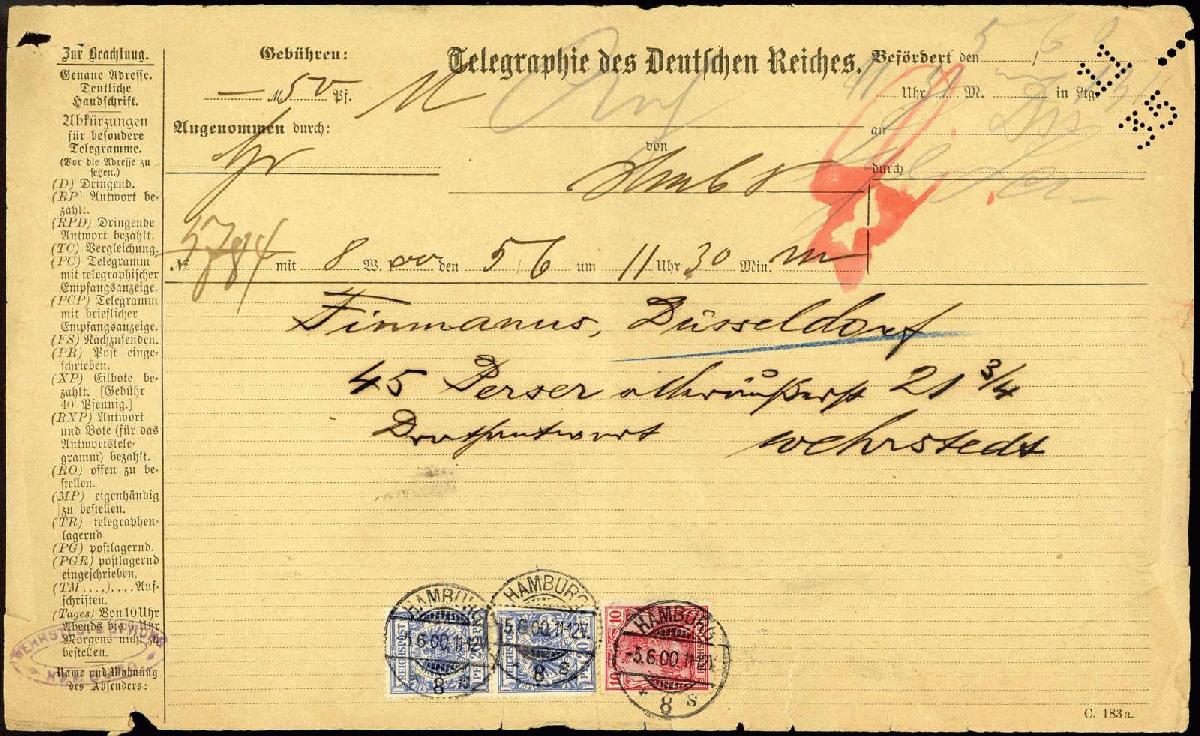 Zur Beachtung.
Genaue Adresse.
Deutliche
Handschrift.
Abkürzungen
für besondere
Telegramme.
(Vor die Adresse zu
setzen.)
(D) Dringend.
(RP) Antwort be-
zahlt.
(RPD) Dringende
Antwort bezahlt.
(TC) Vergleichung.
(PC) Telegramm
mit telegraphischer
Empfangsanzeige.
(PCP) Telegramm
mit brieflicher
Empfangsanzeige.
(FS) Nachzusenden.
(PR) Post einge-
schrieben.
(XP) Eilbote be-
zahlt. [Gebühr
40 Pfennig.]
(RXP) Antwort
und Bote (für das
Antwortstele-
gramm) bezahlt.
(RO) offen zu be-
stellen.
(MP) eigenhändig
zu bestellen.
(TR) telegraphen-
lagernd.
(PG) postlagernd.
(PGR) postlagernd
eingeschrieben.
(TM....)....Auf-
schriften.
(Tages) Von 10 Uhr
Abends bis Uhr
Morgens nicht zu
bestellen.
Name und Wohnung
des Absenders:
Gebühren:
— M. 50 Pf.
Angenommen durch:
Telegraphie des Deutschen Reiches.
von
Hmb 8
Befördert den 5/6
Uhr M. in Ltg.
an
durch
11
35
№ 5784 mit 8 W. den 5/6 um 11 Uhr 30 Min. m
Finmanus, Düsseldorf
45 Perser 21 3/4
Drathantwort Wehrstedt
HAMBURG
5.6.00.11-12V.
8 s
REICHSPOST
HAMBURG
5.6.00.11-12V.
8 s
HAMBURG
-5.6.00.11-12V.
8 s
10
C. 183a.